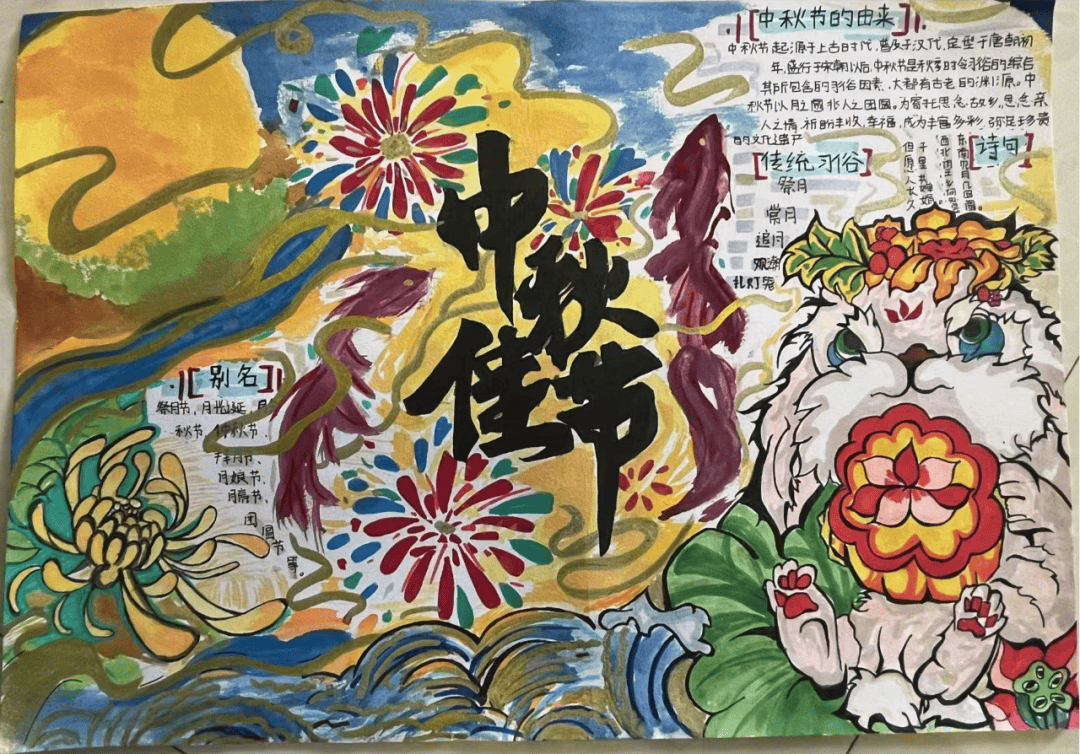 中秋节的由来
中秋节起源于上古时代,普及于汉代,定型于唐朝初
年,盛行于宋朝以后,中秋节是秋季时令习俗的综合
其所包含的习俗因素,大都有古老的渊源。中
秋节以月之圆兆人之团圆。为寄托思念故乡,思念亲
人之情,祈盼丰收、幸福,成为丰富多彩、弥足珍贵
的文化遗产
传统习俗
祭月
常月
追月
观潮
扎灯笼
诗句
东南
西北
千里共婵娟
但愿人长久
中
秋
佳
节
别名
祭月节,月光诞,月
秋节,仲秋节、
拜月节、
月娘节、
月亮节、
团
圆
节
等。